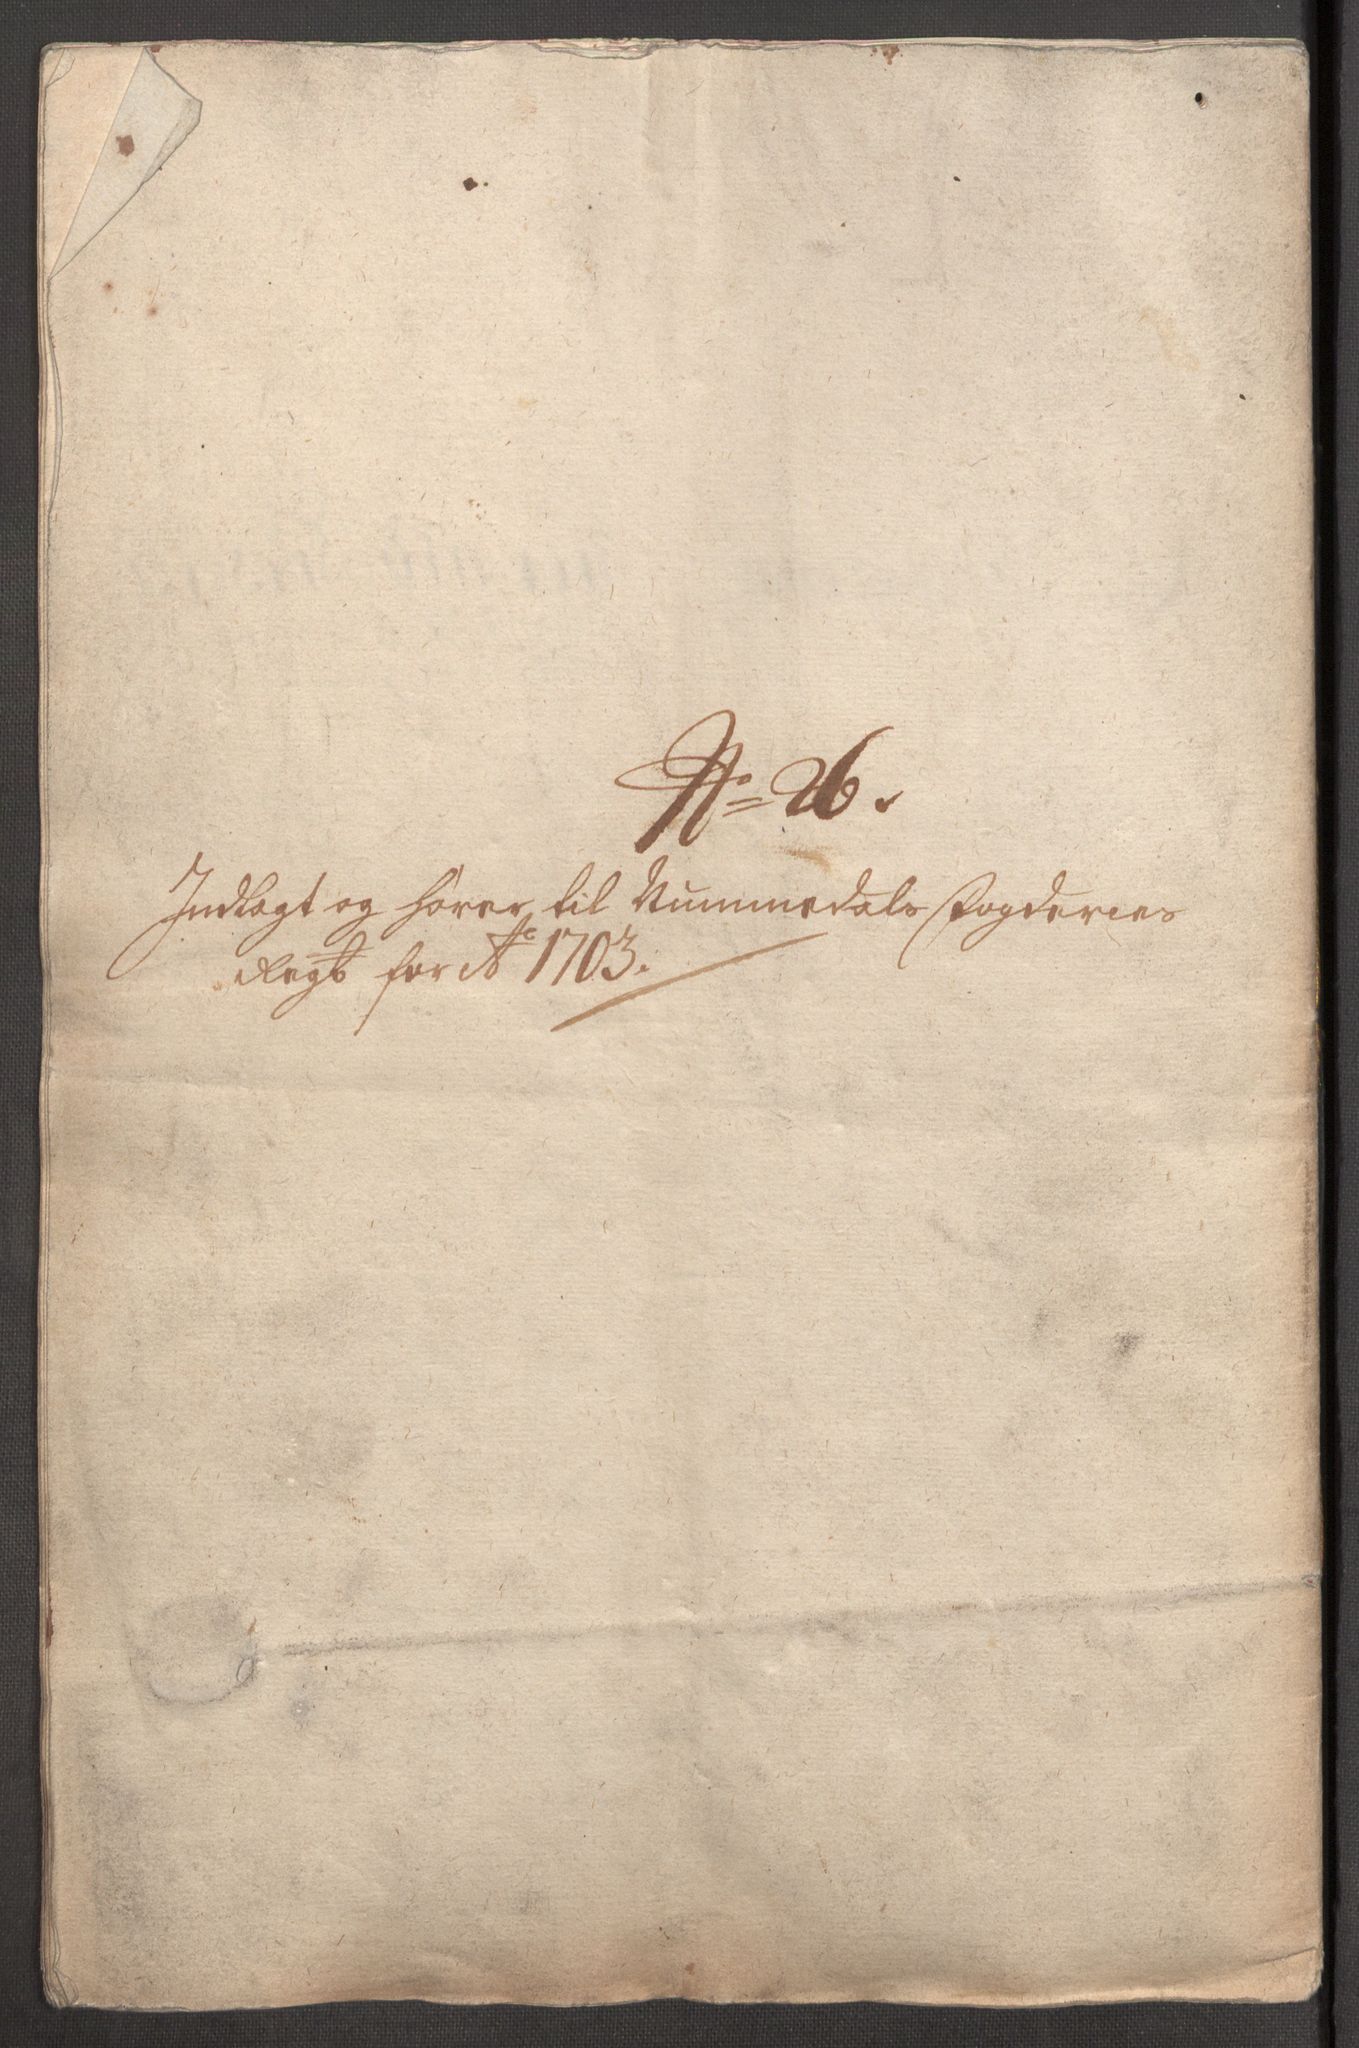 No= 26.
Indlagt og hører til Nummedals fogderies
Regb for Ao 1703.